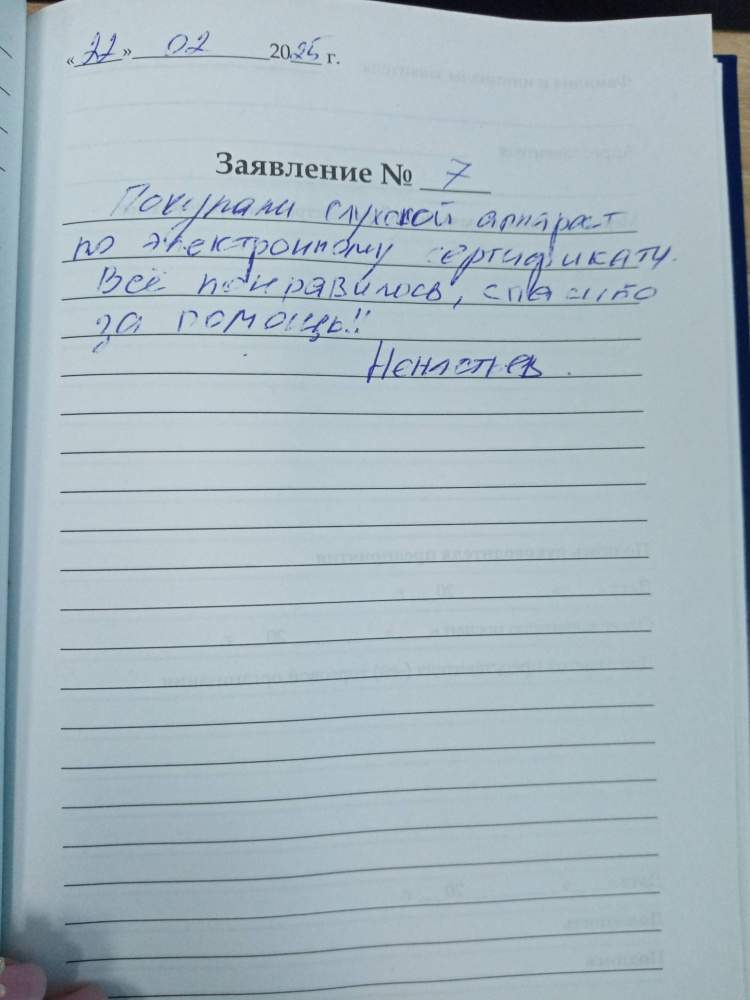 «22» 02 2025 г.
Заявление № 7
Покупали слуховой аппарат
по электронному сертификату.
Всё понравилось, спасибо
за помощь!!